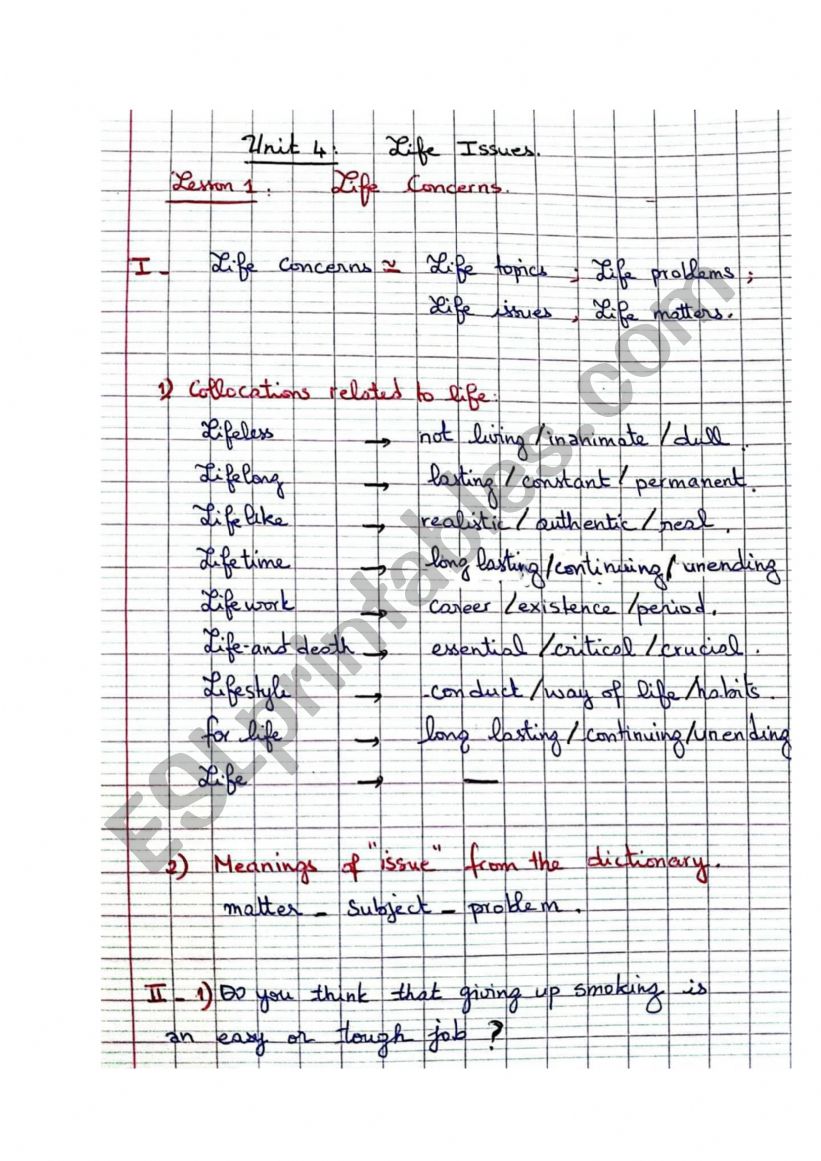 Unit 4: Life Issues.
Lesson 1: Life Concerns.
I- Life concerns ≃ Life topics ; Life problems ;
Life issues , Life matters.
1) Collocations related to life:
Lifeless → not living/inanimate/dull.
Lifelong → lasting/constant/permanent.
Lifelike → realistic/authentic/real.
Lifetime → long lasting/continuing/unending
Lifework → career/existence/period.
Life-and death → essential/critical/crucial.
Lifestyle → conduct/way of life/habits.
for life → long lasting/continuing/unending
Life → —
2) Meanings of "issue" from the dictionary.
matter - Subject - problem.
II - 1) Do you think that giving up smoking is
an easy or tough job ?
ESLprintables.com